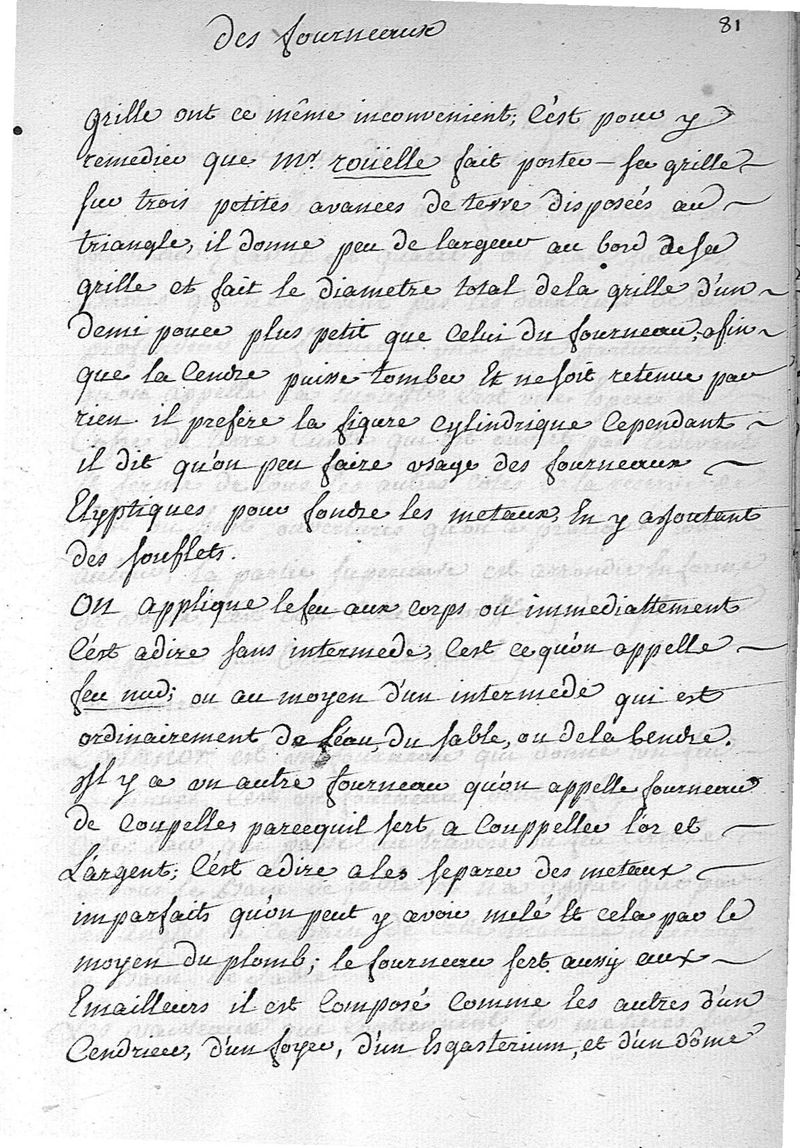 des fourneaux
81
grille ont ce même inconvenient; C'est pour y
remedier que Mr. roüelle fait porter sa grille
sur trois petites avances de terre disposées au
triangle, il donne peu de largeur au bord de sa
grille et fait le diametre total dela grille d'un
demi pouce plus petit que Celui du fourneau, afin
que la Cendre puisse tomber Et ne soit retenue par
rien. il prefere la figure cylindrique Cependant
il dit qu'on peu faire usage des fourneaux
Elyptiques pour fondre les metaux, En y ajoutant
des souflets.
On applique le feu aux corps ou immediattement
C'est adire sans intermede, C'est ce qu'on appelle
feu nud; ou au moyen d'un intermede qui est
ordinairement de l'éau, du sable, ou dela Cendre.
Il y a un autre fourneau qu'on appelle fourneau
de Coupelles parcequil sert a Couppeller l'or et
L'argent; C'est adire a les separer des metaux
imparfaits qu'on peut y avoir melé Et cela par le
moyen du plomb; le fourneau sert aussy aux
Emailleurs il est Composé Comme les autres d'un
Cendrier, d'un foyer, d'un Ergasterium, et d'un dôme